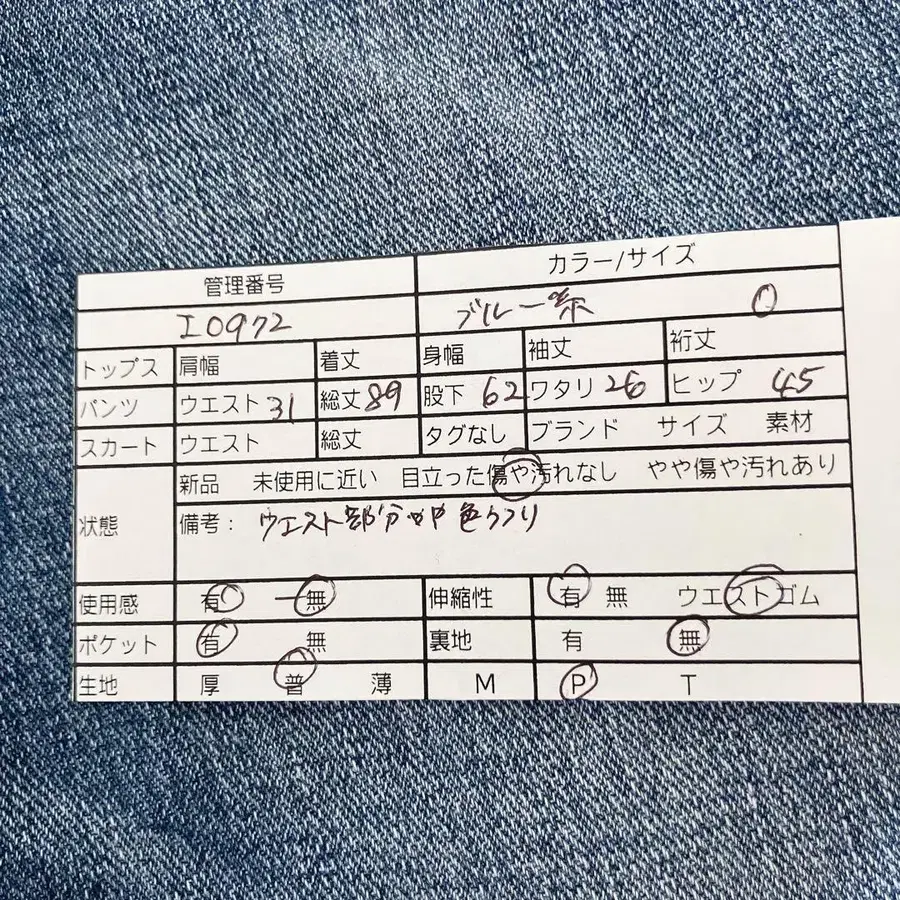 管理番号 カラー/サイズ
I0972 ブルー系 0
トップス 肩幅 着丈 身幅 袖丈 裄丈
パンツ ウエスト 31 総丈 89 股下 62 ワタリ 26 ヒップ 45
スカート ウエスト 総丈 タグなし ブランド サイズ 素材
状態 新品 未使用に近い 目立った傷や汚れなし やや傷や汚れあり
備考： ウエスト部分やや色うつり
使用感 有 ー 無 伸縮性 有 無 ウエストゴム
ポケット 有 無 裏地 有 無
生地 厚 普 薄 M P T